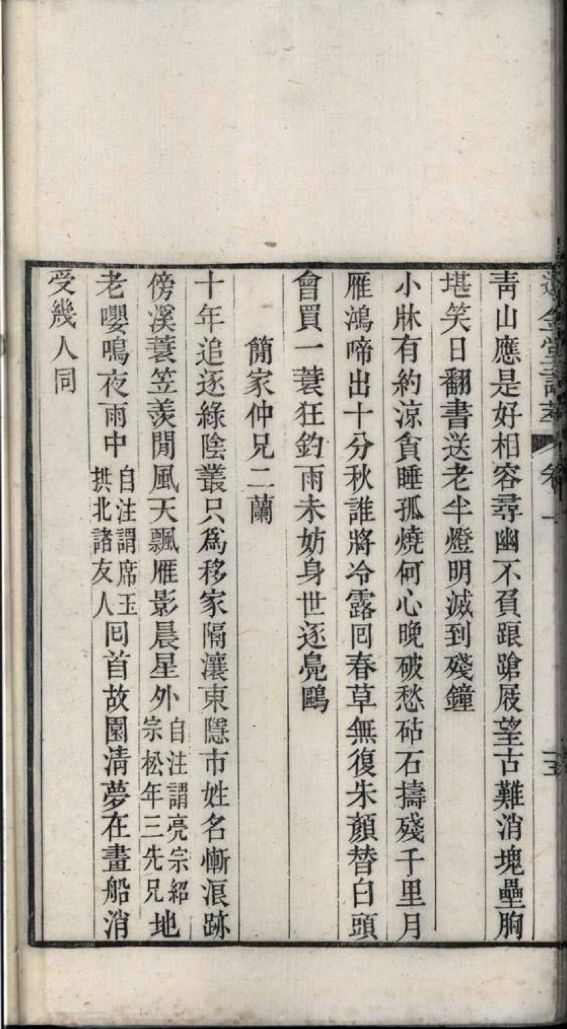 金堂詩
青山應是好相容尋幽不負踉蹌屐望古難消塊壘胸
堪笑日翻書送老半燈明滅到殘鐘
小牀有約涼貪睡孤燒何心晚破愁砧石擣殘千里月
雁鴻啼出十分秋誰將冷露回春草無復朱顏替白頭
會買一蓑狂釣雨未妨身世逐鳧鷗
簡家仲兄二蘭
十年追逐綠陰叢只爲移家隔瀼東隱市姓名慚溷跡
傍溪蓑笠羨閒風天飄雁影晨星外自注謂亮宗紹宗松年三先兄地
老嚶鳴夜雨中自注謂席玉拱北諸友人回首故園清夢在畫船消
受幾人同